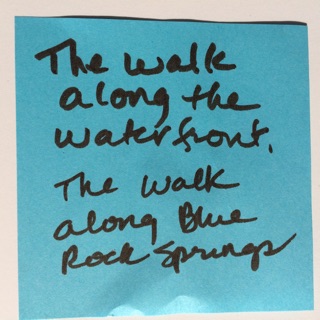 The walk
along the
waterfront.
The walk
along Blue
Rock Springs